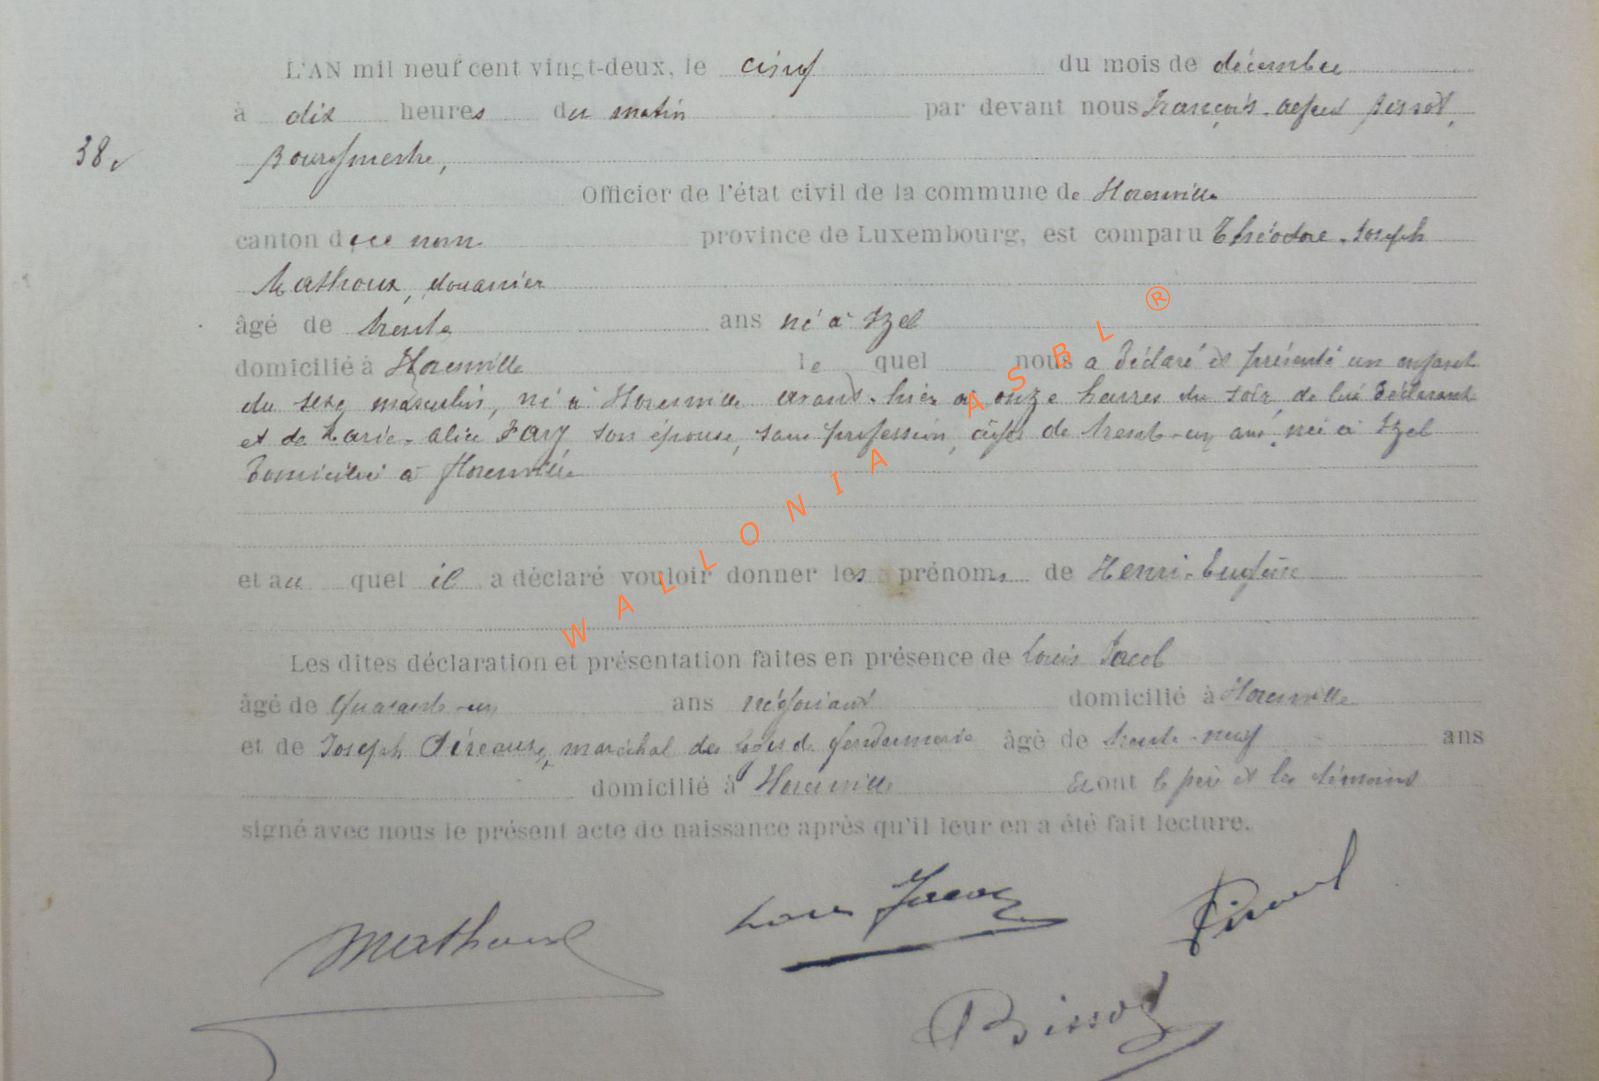 L'AN mil neuf cent vingt-deux, le cinq du mois de décembre
à dix heures du matin par devant nous François-Alfred Bissot,
38
Bourgmestre,
Officier de l'état civil de la commune de Florenville
canton de ce nom province de Luxembourg, est comparu Théodore-Joseph
Mathoux, douanier
âgé de trente ans né à Izel
domicilié à Florenville lequel nous a déclaré et présenté un enfant
du sexe masculin, né à Florenville avant-hier à onze heures du soir, de lui déclarant
et de Marie-Alice son épouse, sans profession, âgée de trente-un ans, née à Izel
domiciliée à Florenville
et auquel il a déclaré vouloir donner les prénoms de Henri-Eugène
Les dites déclaration et présentation faites en présence de Louis Jacob
âgé de quarante-un ans négociant domicilié à Florenville
et de Joseph maréchal des logis de gendarmerie âgé de trente-neuf ans
domicilié à Florenville Et ont le père et les témoins
signé avec nous le présent acte de naissance après qu'il leur en a été fait lecture.
Mathoux Louis Jacob
Bissot
WALLONIA ASBL ®